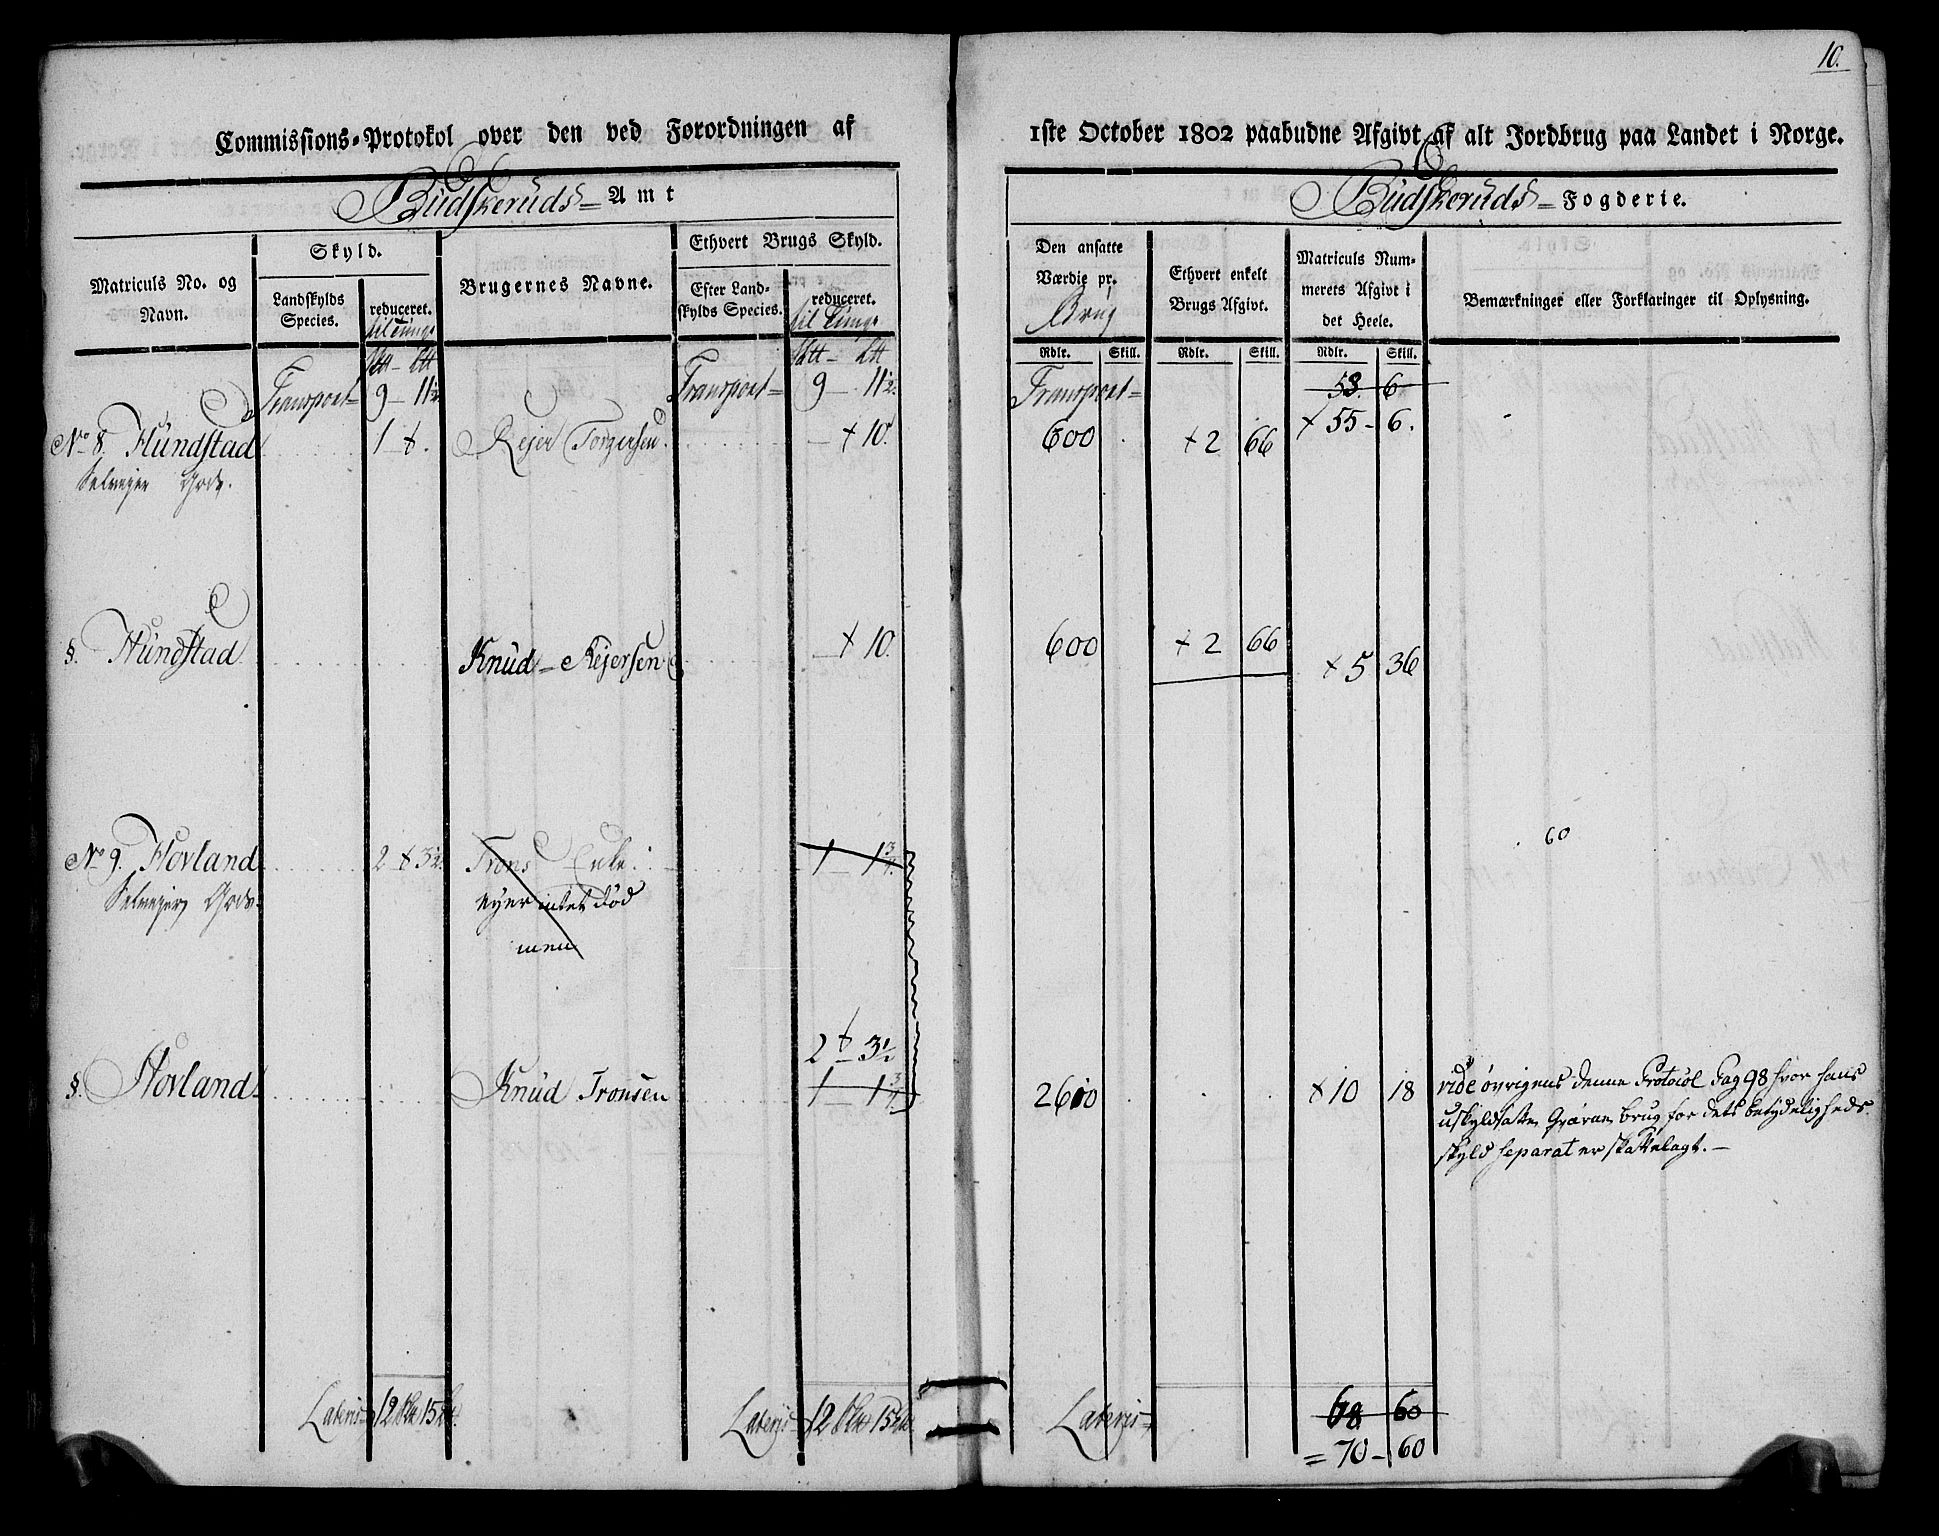 10.
Commissions-Protokol over den ved Forordningen af 1ste October 1802 paabudne Afgivt af alt Jordbrug paa Landet i Norge.
Budskeruds Amt
Budskeruds Fogderie.
Matriculs No. og Navn.
Skyld.
Landskylds Species.
reduceret.
til Tunge
Brugernes Navne.
Ethvert Brugs Skyld.
Efter Landskylds Species.
reduceret.
til Tunge
Den ansatte Værdie pr. Brug
Ethvert enkelt Brugs Afgivt.
Matriculs Nummerets Afgivt i det Heele.
Bemærkninger eller Forklaringer til Oplysning.
Rdlr. Skill. Rdlr. Skill. Rdlr. Skill.
Transport= 9 – 11½ Transport= 9 – 11½ Transport= 58. 6
+ 55 – 6.
No 8. Hundstad 1 + . Rejer Torgersen. – + 10. 600 . + 2 66
Selvejer Gods.
§. Hundstad Knud – Rejersen – + 10. 600 + 2 66 + 5 36
60
No 9. Hovland 2 + 3½ Trons Enke: 1 – 1¾
Selvejer Gods eyer intet død
men
2 + 3½
§. Hovland Knud Tronsen 1 – 1¾ 2600 + 10 18 vide øvrigens denne Protocol Pag 98 hvor hans
uskyldsatte Qværne brug for dets betydeligheds
skyld separat er skattelagt. –
Lateris 12 15 Lateris 12 15 Lateris 68 60
= 70 – 60